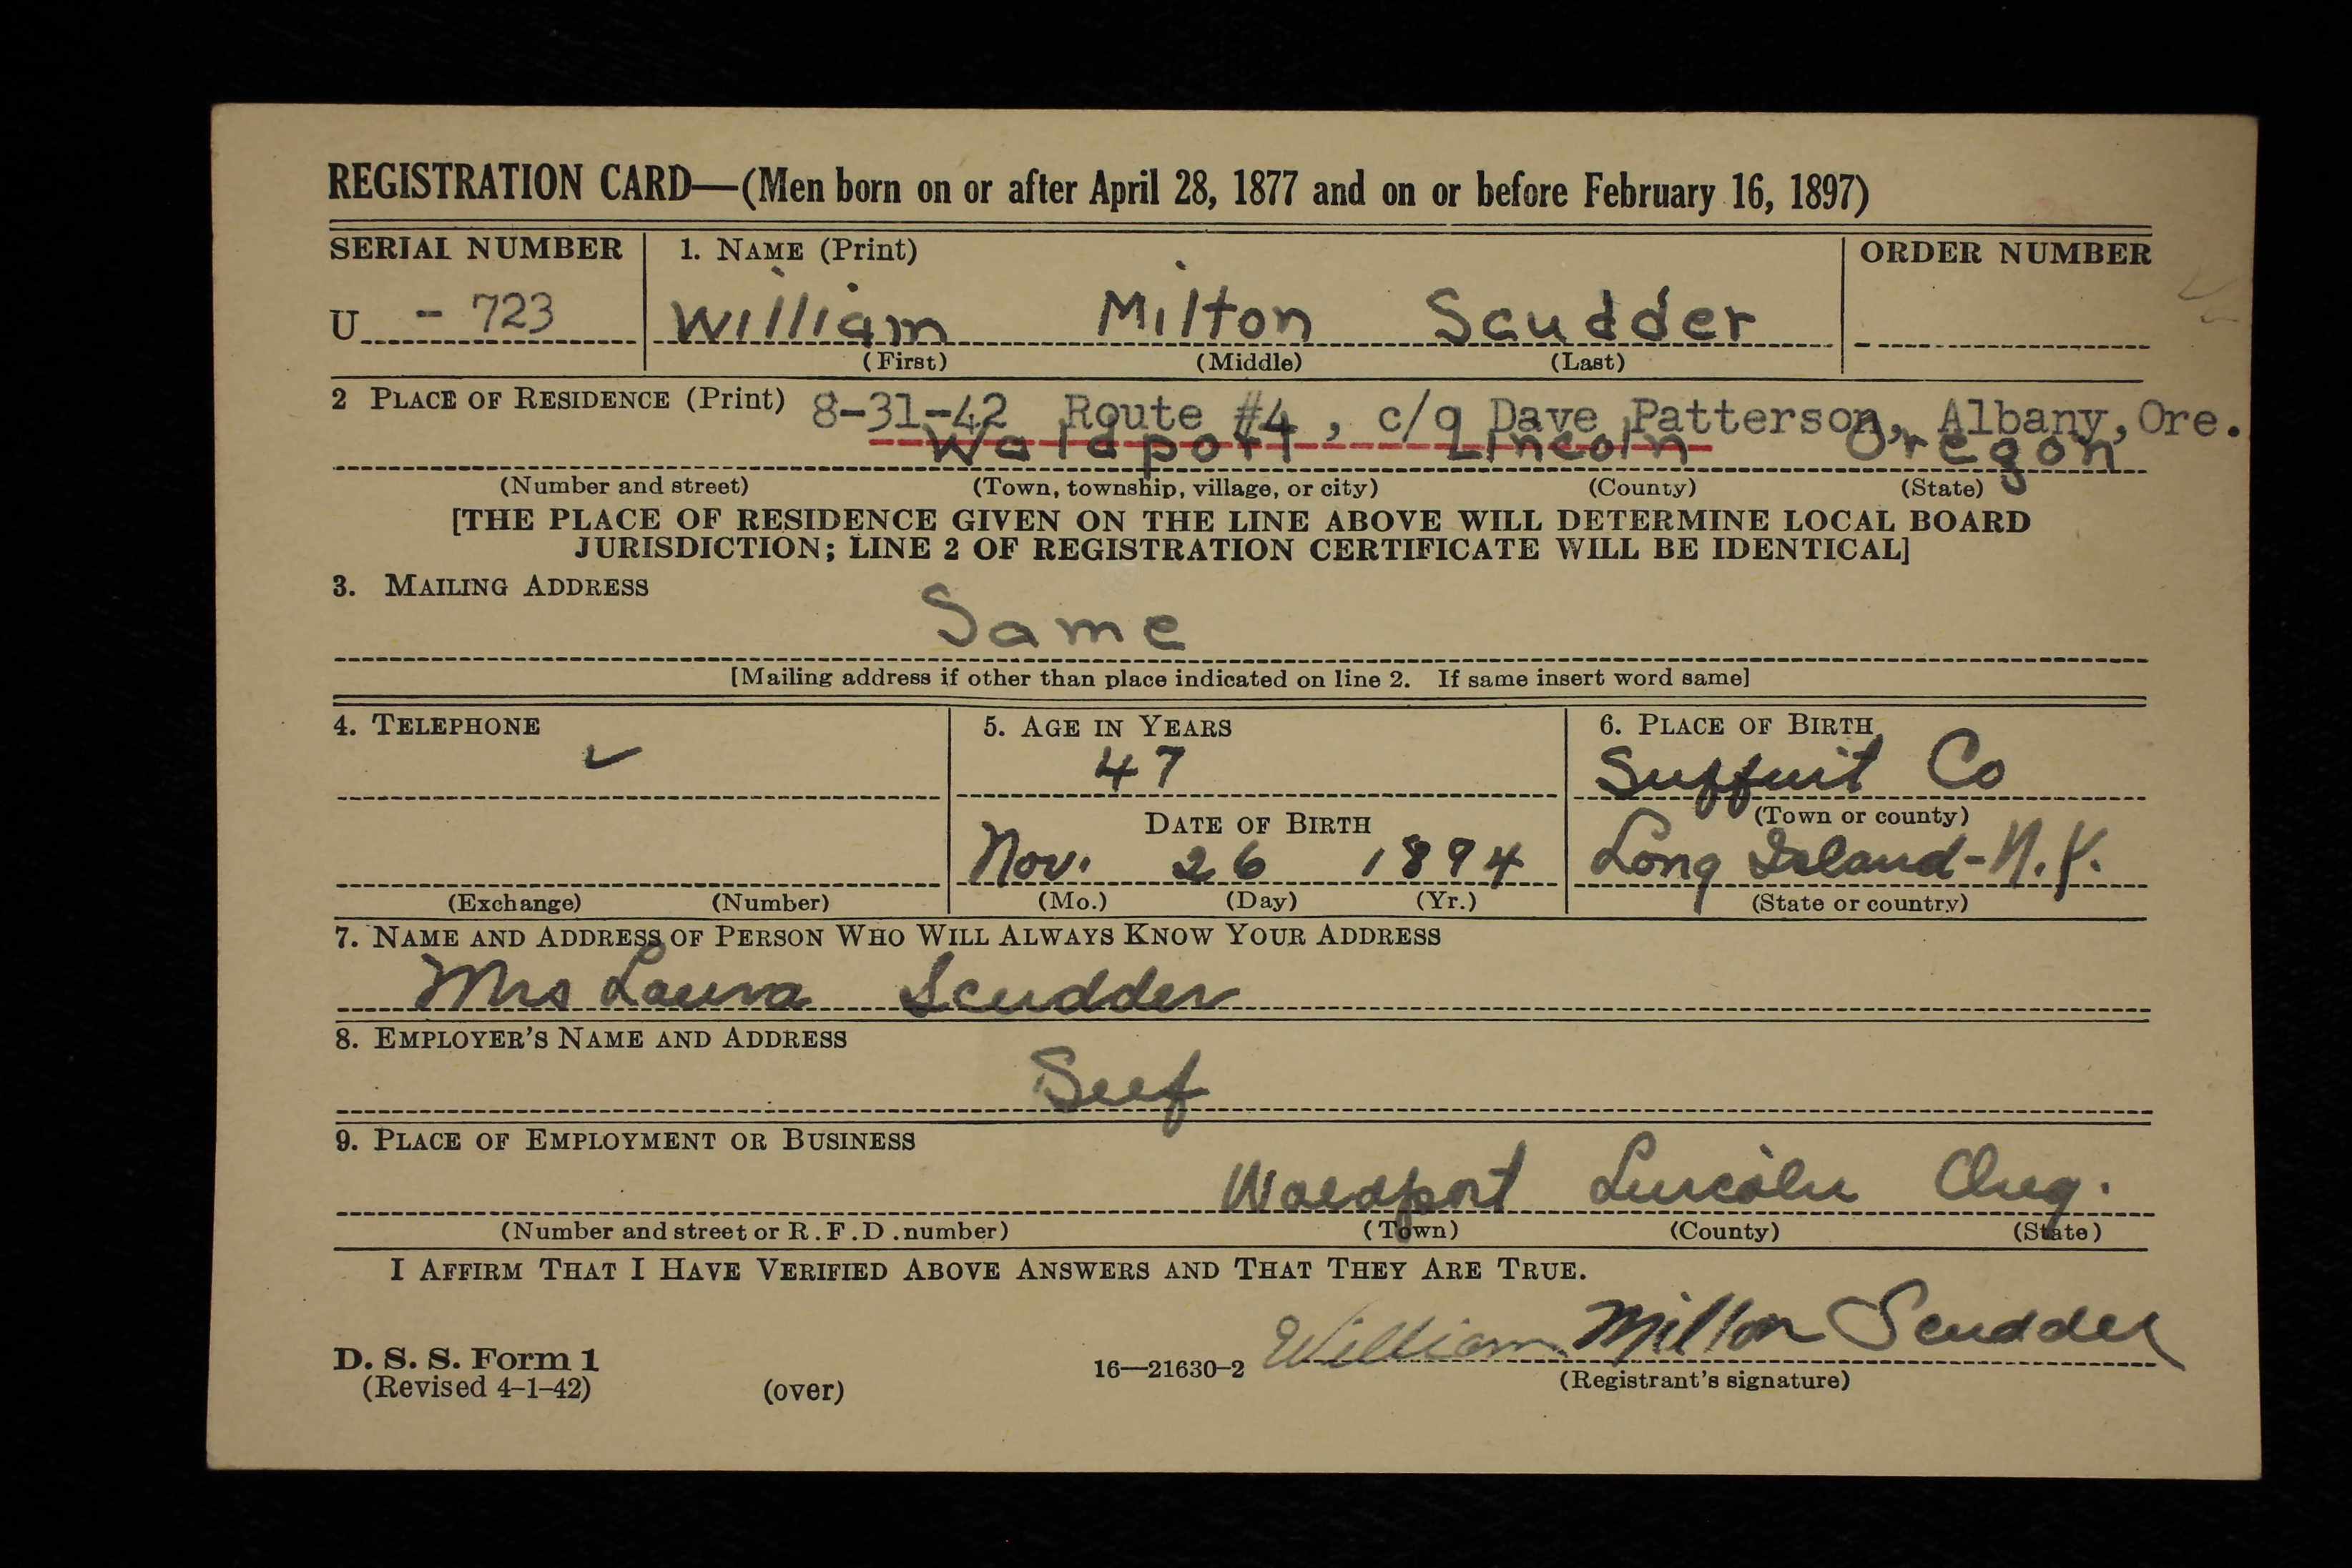 REGISTRATION CARD—(Men born on or after April 28, 1877 and on or before February 16, 1897)
SERIAL NUMBER 1. NAME (Print) ORDER NUMBER
U - 723 William Milton Scudder
(First) (Middle) (Last)
2 PLACE OF RESIDENCE (Print) 8-31-42 Route #4, c/o Dave Patterson, Albany, Ore.
Waldport Lincoln Oregon
(Number and street) (Town, township, village, or city) (County) (State)
[THE PLACE OF RESIDENCE GIVEN ON THE LINE ABOVE WILL DETERMINE LOCAL BOARD
JURISDICTION; LINE 2 OF REGISTRATION CERTIFICATE WILL BE IDENTICAL]
3. MAILING ADDRESS
Same
[Mailing address if other than place indicated on line 2. If same insert word same]
4. TELEPHONE 5. AGE IN YEARS 6. PLACE OF BIRTH
47 Co
DATE OF BIRTH (Town or county)
Nov. 26 1894 Long Island-N.Y.
(Exchange) (Number) (Mo.) (Day) (Yr.) (State or country)
7. NAME AND ADDRESS OF PERSON WHO WILL ALWAYS KNOW YOUR ADDRESS
Mrs Laura Scudder
8. EMPLOYER'S NAME AND ADDRESS
Self
9. PLACE OF EMPLOYMENT OR BUSINESS
Waldport Lincoln Oreg.
(Number and street or R.F.D. number) (Town) (County) (State)
I AFFIRM THAT I HAVE VERIFIED ABOVE ANSWERS AND THAT THEY ARE TRUE.
William Milton Scudder
D. S. S. Form 1 16—21630-2
(Revised 4-1-42) (over) (Registrant's signature)